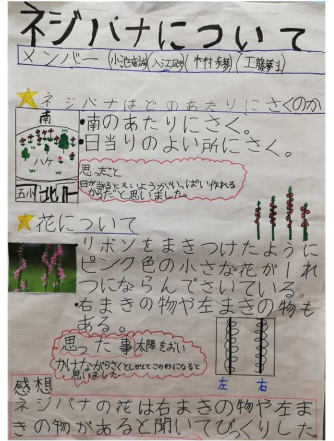 ネジバナについて
メンバー
ネジバナはどのあたりにさくのか
南
ハケ
北
・南のあたりにさく。
・日当りのよい所にさく。
思ったこと
日が当るとえいようがいっぱい作れる
からだと思いました。
花について
リボンをまきつけたように
ピンク色の小さな花が一れ
つにならんでさいている。
・右まきの物や左まきの物も
ある。
思った事 太陽をおい
かけながらさくとしぜんてこの形になると
思いました
左 右
感想
ネジバナの花は右まきの物や左ま
きの物があると聞いてびっくりした